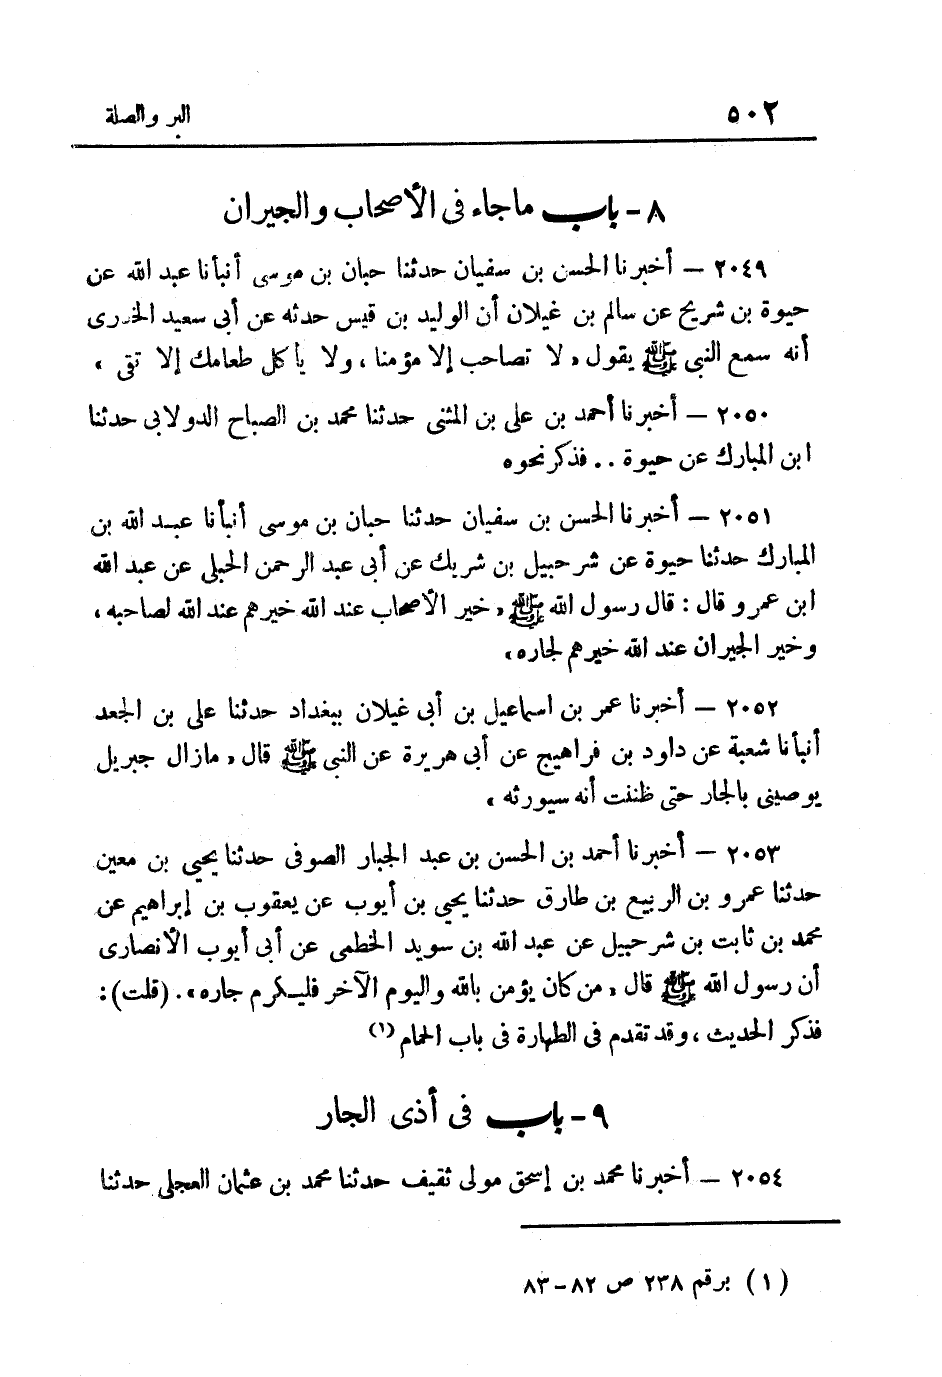 ٥٠٢ البر والصلة
٨ - باب ماجاء فى الأصحاب والجيران
٢٠٤٩ — أخبرنا الحسن بن سفيان حدثنا حبان بن موسى أنبأنا عبد الله عن
حيوة بن شريح عن سالم بن غيلان أن الوليد بن قيس حدثه عن أبى سعيد الخدرى
أنه سمع النبى ﷺ يقول « لا تصاحب إلا مؤمنا ، ولا يأكل طعامك إلا تقى »
٢٠٥٠ — أخبرنا أحمد بن على بن المثنى حدثنا محمد بن الصباح الدولابى حدثنا
ابن المبارك عن حيوة .. فذكر نحوه
٢٠٥١ — أخبرنا الحسن بن سفيان حدثنا حبان بن موسى أنبأنا عبد الله بن
المبارك حدثنا حيوة عن شرحبيل بن شريك عن أبى عبد الرحمن الحبلى عن عبد الله
ابن عمرو قال : قال رسول الله ﷺ « خير الأصحاب عند الله خيرهم عند الله لصاحبه ،
وخير الجيران عند الله خيرهم لجاره »
٢٠٥٢ — أخبرنا عمر بن اسماعيل بن أبى غيلان ببغداد حدثنا على بن الجعد
أنبأنا شعبة عن داود بن فراهيج عن أبى هريرة عن النبى ﷺ قال « مازال جبريل
يوصينى بالجار حتى ظننت أنه سيورثه »
٢٠٥٣ — أخبرنا أحمد بن الحسن بن عبد الجبار الصوفى حدثنا يحيى بن معين
حدثنا عمرو بن الربيع بن طارق حدثنا يحيى بن أيوب عن يعقوب بن إبراهيم عن
محمد بن ثابت بن شرحبيل عن عبد الله بن سويد الخطمى عن أبى أيوب الأنصارى
أن رسول الله ﷺ قال « من كان يؤمن بالله واليوم الآخر فليكرم جاره » . (قلت) :
فذكر الحديث ، وقد تقدم فى الطهارة فى باب الحمام (١)
٩ - باب فى أذى الجار
٢٠٥٤ — أخبرنا محمد بن إسحق مولى ثقيف حدثنا محمد بن عثمان العجلى حدثنا
(١) برقم ٢٣٨ ص ٨٢ - ٨٣